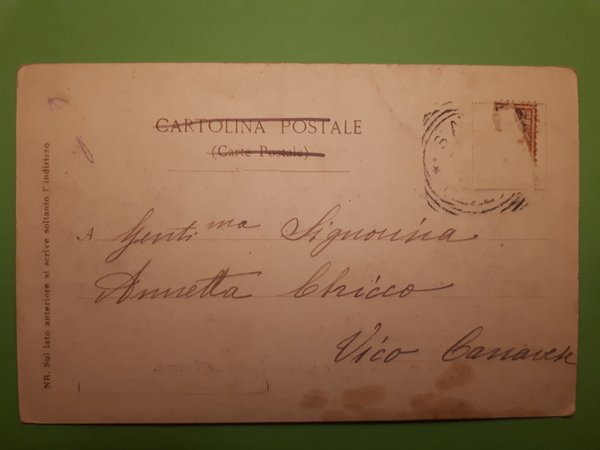 CARTOLINA POSTALE
(Carte Postale)
A Gentma Signorina
Annetta Chicco
Vico Canavese
NB. Sul lato anteriore si scrive soltanto l'indirizzo